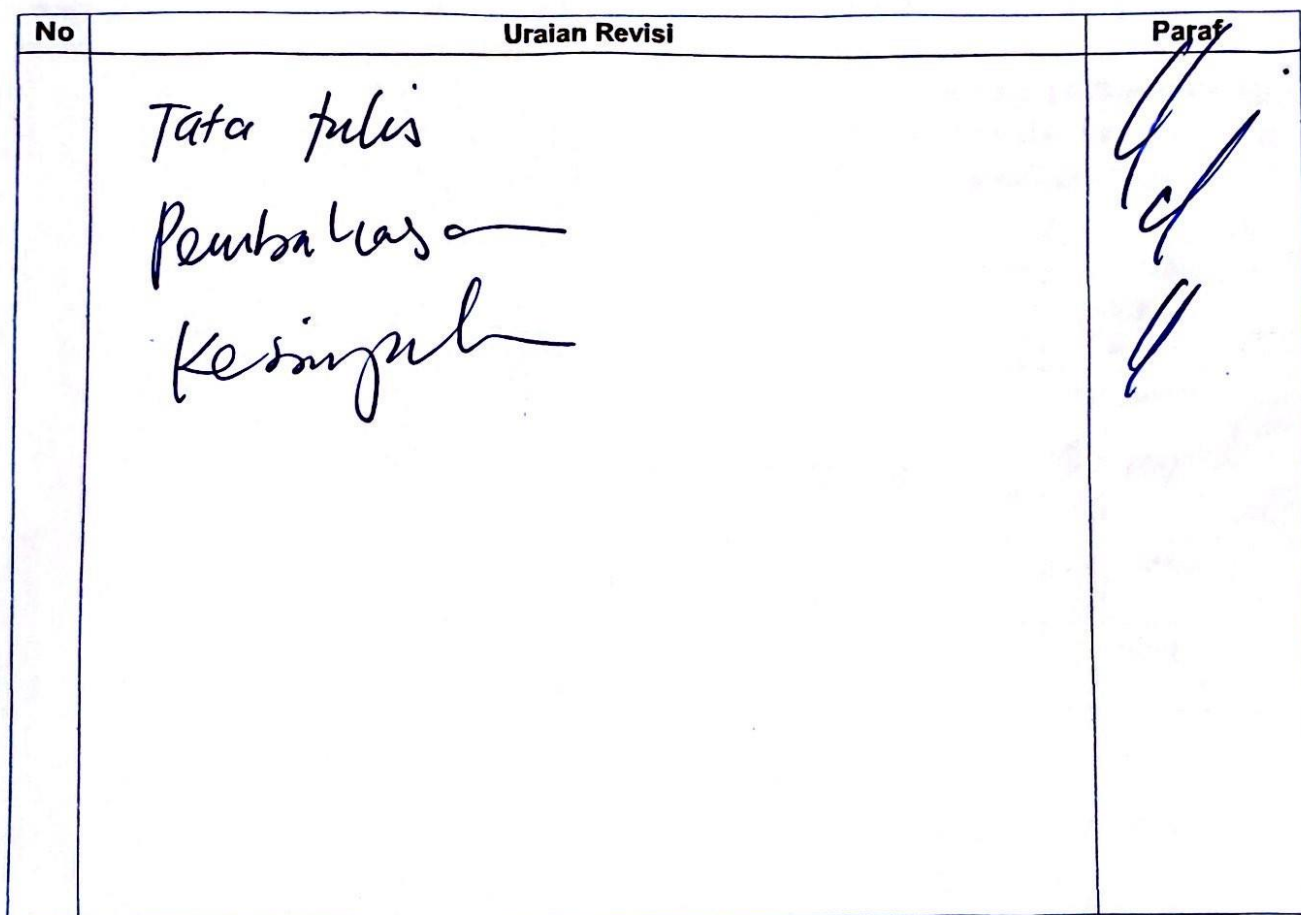 No Uraian Revisi Paraf
Tata tulis
Pembahasan
Kesimpulan